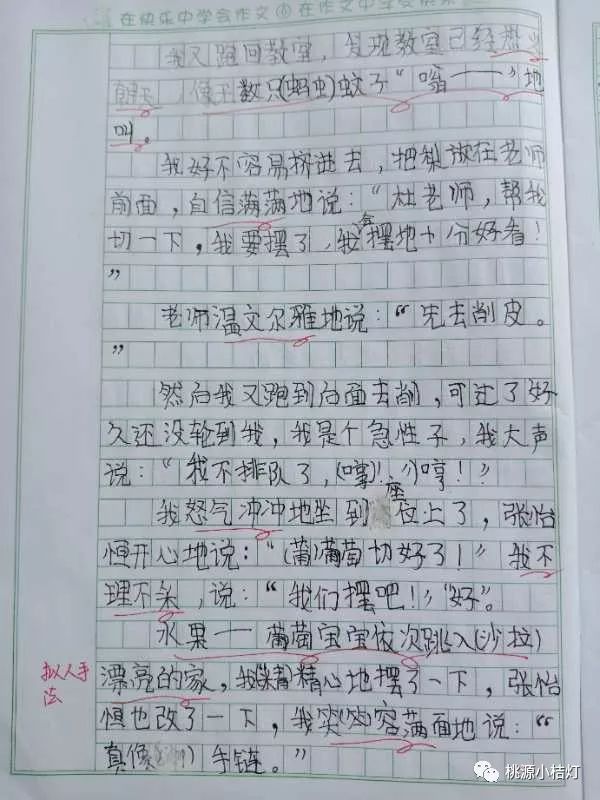 在快乐中学会作文 在作文中学会快乐
我又跑回教室，发现教室已经热火
朝天，像有数只(蚂虫)蚊子“嗡——”地
叫。
我好不容易挤进去，把梨放在老师
前面，自信满满地说：“杜老师，帮我
切一下，我要摆了，我会摆地十分好看！
”
老师温文尔雅地说：“先去削皮。
”
然后我又跑到后面去削，可过了好
久还没轮到我，我是个急性子，我大声
说：“我不排队了，(哼)！哼！”
我怒气冲冲地坐到座位上了，张怡
恒开心地说：“(葡)葡萄切好了！”我不
理不采，说：“我们摆吧！”“好”。
水果一一葡萄宝宝依次跳入(沙拉)
漂亮的家，我精心地摆了一下，张怡
恒也改了一下，我笑容满面地说：“
真像手链。”
拟人手
法
桃源小桔灯